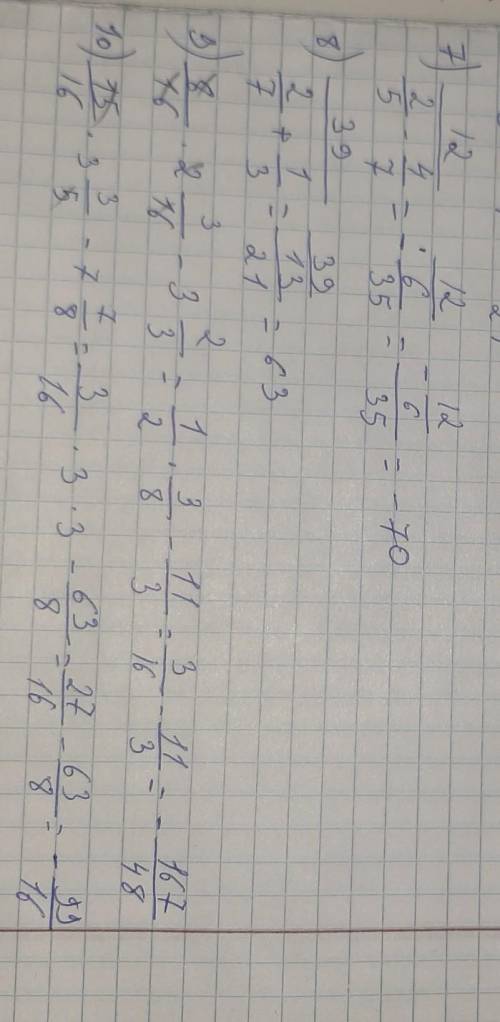 7) 12/(2/5 - 4/7) = 12/(-6/35) = -12/(6/35) = -70
8) 39/(2/7 + 1/3) = 39/(13/21) = 63
9) 8/16 · 2 3/16 - 3 2/3 = 1/2 · 3/8 - 11/3 = 3/16 - 11/3 = -167/48
10) 15/16 · 3 3/5 - 7 7/8 = 3/16 · 3 · 3 - 63/8 = 27/16 - 63/8 = -99/16